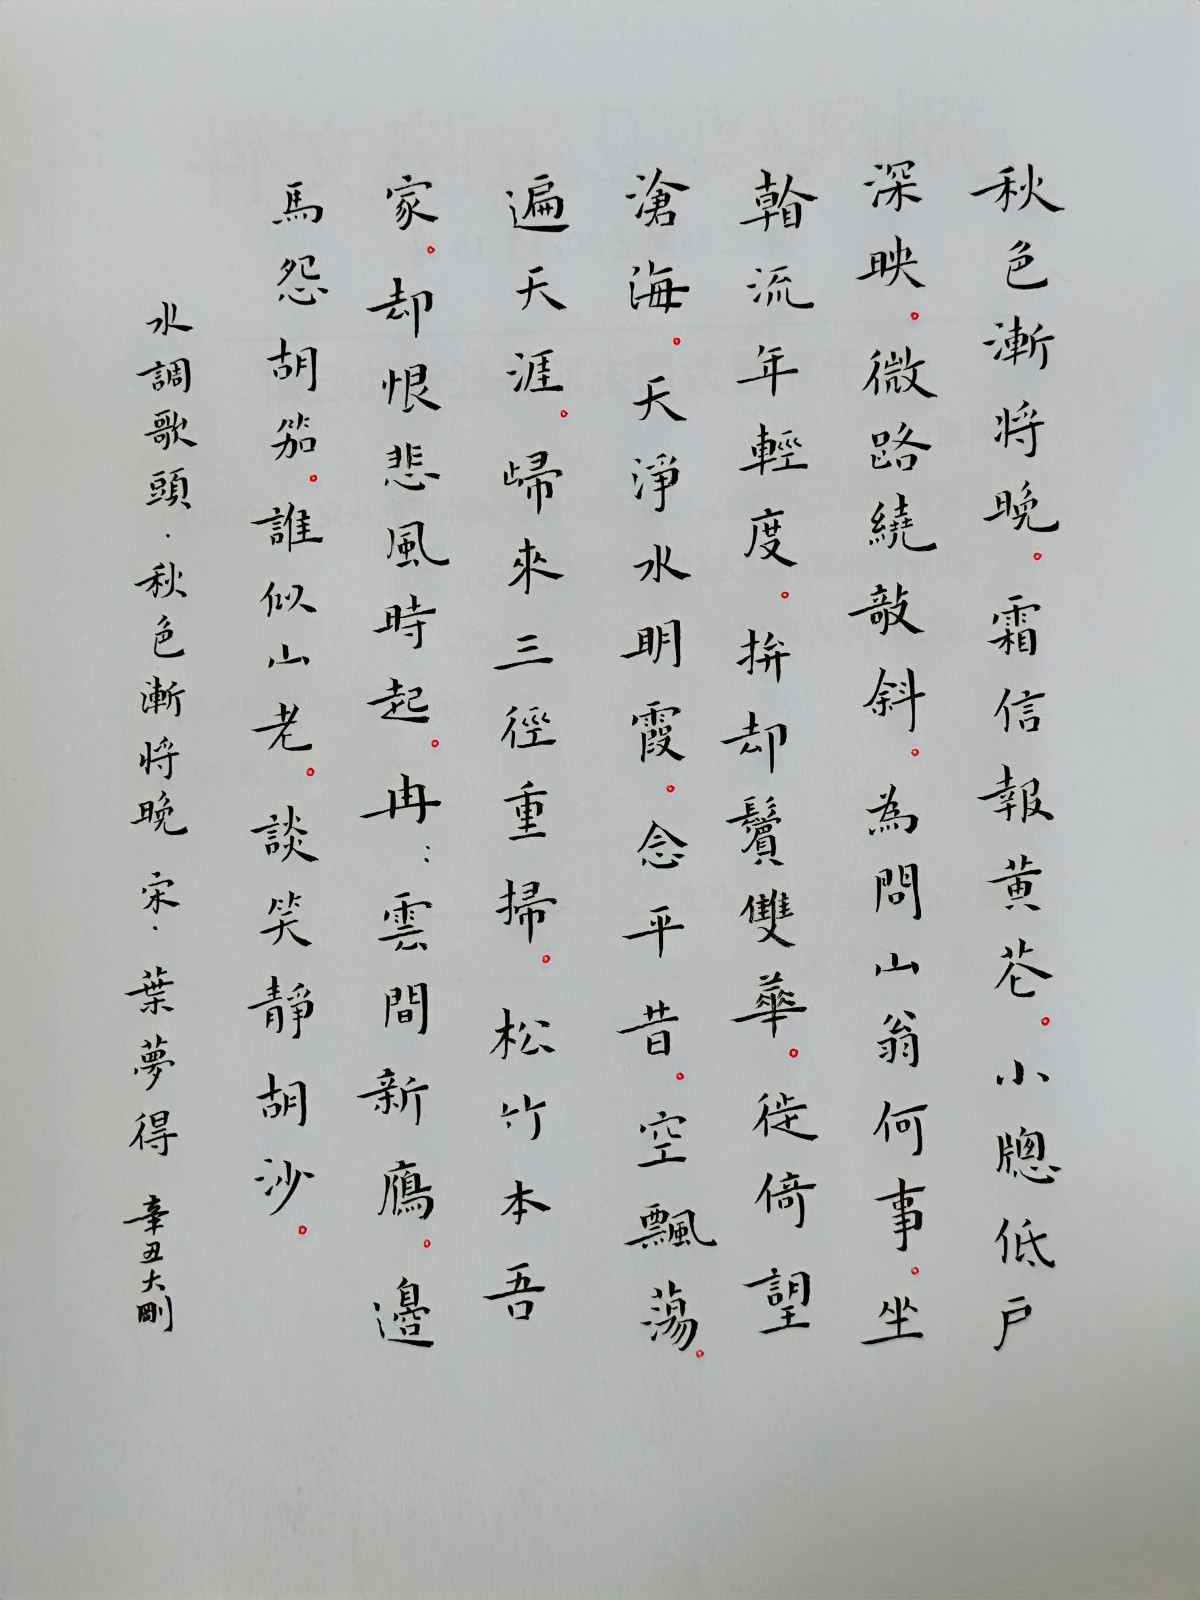 秋色漸将晚。霜信報黄花。小牕低户
深映。微路繞敧斜。為問山翁何事。坐
看流年輕度。拚却鬢雙華。徙倚望
滄海。天淨水明霞。念平昔。空飄蕩。
遍天涯。歸來三徑重掃。松竹本吾
家。却恨悲風時起。冉：雲間新鴈。邊
馬怨胡笳。誰似山老。談笑靜胡沙。
水調歌頭·秋色漸将晚 宋·葉夢得 辛丑大剛